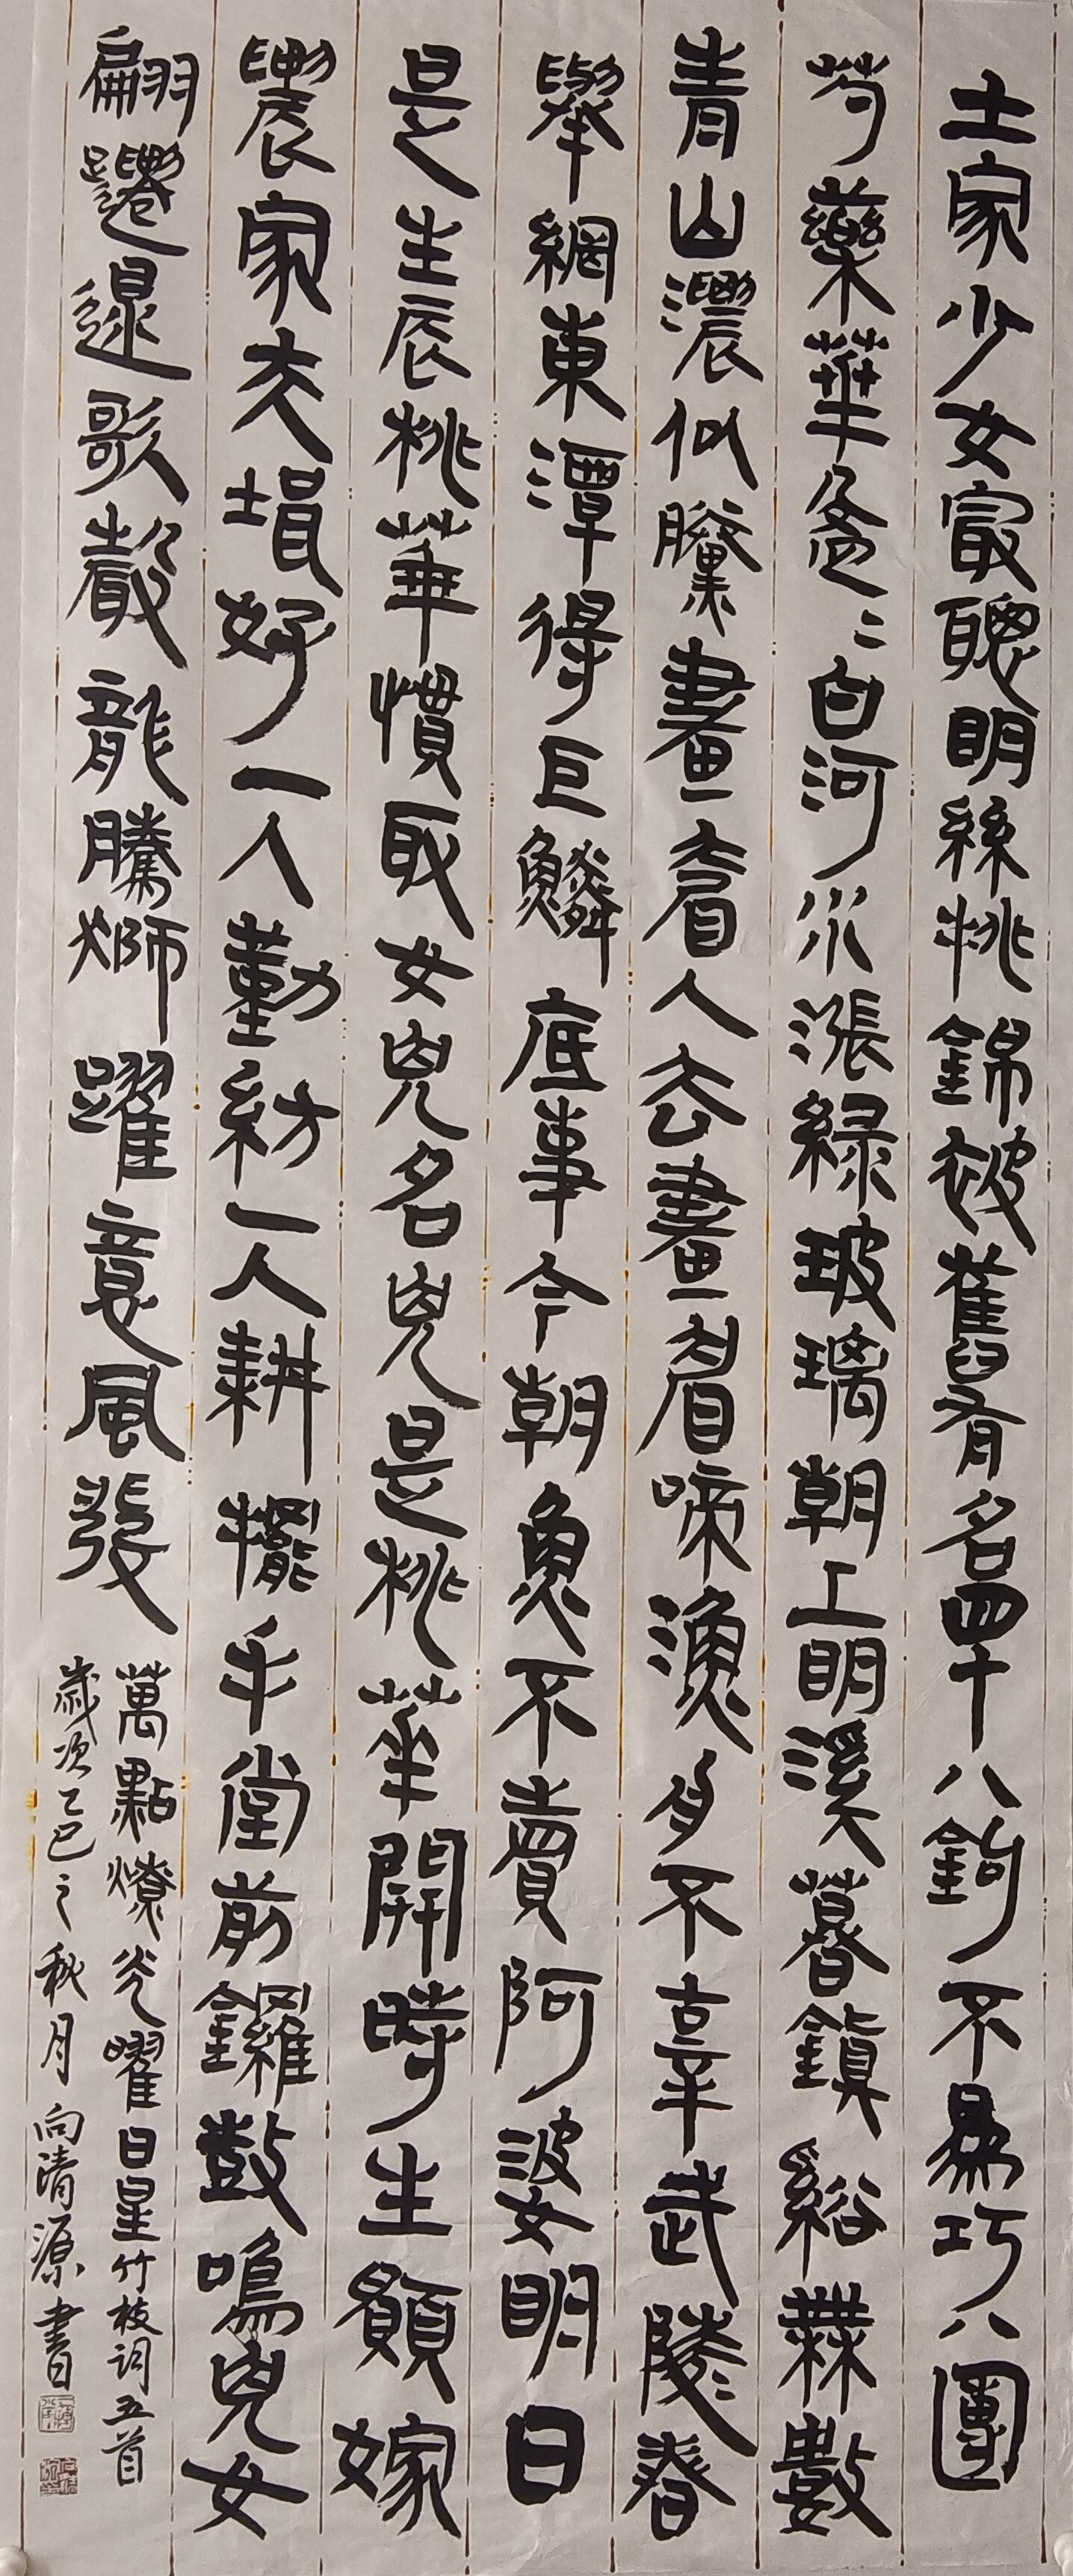 土家少女最聰明絲挑錦被舊有名四十八鉤不巧八團
芍藥華盈〻白河水漲綠玻璃朝上明溪暮鎮谿無數
青山濃似黱畫眉人去畫眉啼漁舟不幸武陵春
舉網東潭得巨鱗底事今朝魚不賣阿婆明日
是生辰桃華慣取女兒名兒是桃華開時生願嫁
農家夫壻好一人勤紡一人耕擺手堂前鑼鼓鳴兒女
翩躚歌聲龍騰獅躍意風張
萬點燎光曜日星竹枝詞五首
歲次乙巳之秋月向清源書